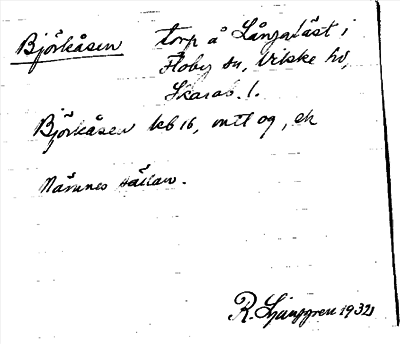 Björkåsen torp å Långatäst i
Floby sn, Vilske hd,
Skarab. l.
Björkåsen kb 16, mtl og, ek
Nämnes sällan.
R. Ljunggren 1932